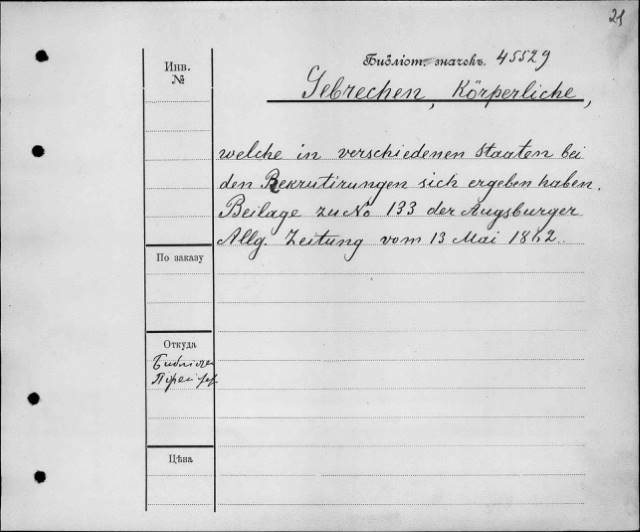 21
Инв.
№
Библіот. значекъ. 45529
Gebrechen, Körperliche,
welche in verschiedenen Staaten bei
den Rekrutirungen sich ergeben haben.
Beilage zu No 133 der Augsburger
Allg. Zeitung vom 13 Mai 1862.
По заказу
Откуда
Цѣна